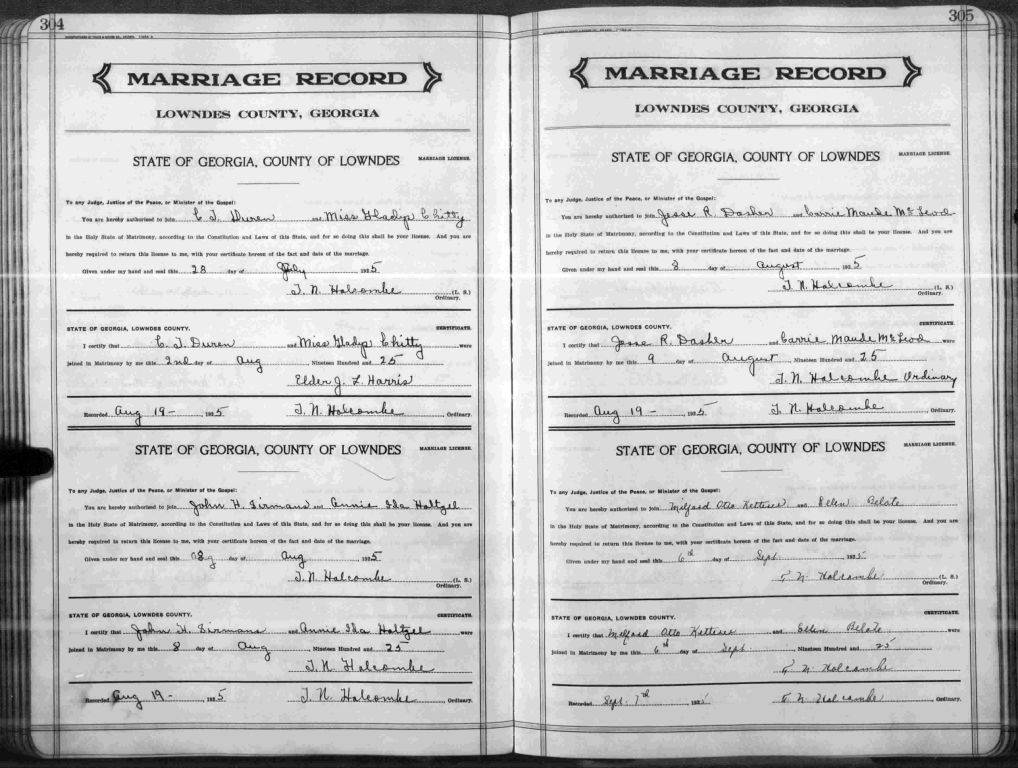 304
MARRIAGE RECORD
LOWNDES COUNTY, GEORGIA
STATE OF GEORGIA, COUNTY OF LOWNDES MARRIAGE LICENSE.
To any Judge, Justice of the Peace, or Minister of the Gospel:
You are hereby authorized to join C T Duren and Miss Gladys Chitty
in the Holy State of Matrimony, according to the Constitution and Laws of this State, and for so doing this shall be your license. And you are
hereby required to return this license to me, with your certificate hereon of the fact and date of the marriage.
Given under my hand and seal this 28 day of July 1925
T. N. Holcombe (L. S.)
Ordinary.
STATE OF GEORGIA, LOWNDES COUNTY. CERTIFICATE.
I certify that C. T. Duren and Miss Gladys Chitty were
joined in Matrimony by me this 2nd day of Aug Nineteen Hundred and 25
Elder J. Z. Harris
Recorded Aug 19 - 1925 T. N. Holcombe Ordinary.
STATE OF GEORGIA, COUNTY OF LOWNDES MARRIAGE LICENSE.
To any Judge, Justice of the Peace, or Minister of the Gospel:
You are hereby authorized to join John H. Sirmans and Annie Ida Holtzel
in the Holy State of Matrimony, according to the Constitution and Laws of this State, and for so doing this shall be your license. And you are
hereby required to return this license to me, with your certificate hereon of the fact and date of the marriage.
Given under my hand and seal this 8 day of Aug 1925
T. N. Holcombe (L. S.)
Ordinary.
STATE OF GEORGIA, LOWNDES COUNTY. CERTIFICATE.
I certify that John H. Sirmans and Annie Ida Holtzel were
joined in Matrimony by me this 8 day of Aug, Nineteen Hundred and 25
T. N. Holcombe
Recorded Aug 19 - 1925 T. N. Holcombe, Ordinary.
305
MARRIAGE RECORD
LOWNDES COUNTY, GEORGIA
STATE OF GEORGIA, COUNTY OF LOWNDES MARRIAGE LICENSE.
To any Judge, Justice of the Peace, or Minister of the Gospel:
You are hereby authorized to join Jesse R. Dasher and Carrie Maude McLeod
in the Holy State of Matrimony, according to the Constitution and Laws of this State, and for so doing this shall be your license. And you are
hereby required to return this license to me, with your certificate hereon of the fact and date of the marriage.
Given under my hand and seal this 8 day of August 1925
T. N. Holcombe (L. S.)
Ordinary.
STATE OF GEORGIA, LOWNDES COUNTY. CERTIFICATE.
I certify that Jesse R. Dasher and Carrie Maude McLeod were
joined in Matrimony by me this 9 day of August, Nineteen Hundred and 25
T. N. Holcombe Ordinary
Recorded Aug 19 - 1925 T. N. Holcombe, Ordinary.
STATE OF GEORGIA, COUNTY OF LOWNDES MARRIAGE LICENSE.
To any Judge, Justice of the Peace, or Minister of the Gospel:
You are hereby authorized to join Milford Otto and Ellen
in the Holy State of Matrimony, according to the Constitution and Laws of this State, and for so doing this shall be your license. And you are
hereby required to return this license to me, with your certificate hereon of the fact and date of the marriage.
Given under my hand and seal this 6th day of Sept 1925
T. N. Holcombe (L. S.)
Ordinary.
STATE OF GEORGIA, LOWNDES COUNTY. CERTIFICATE.
I certify that Milford Otto and Ellen were
joined in Matrimony by me this 6th day of Sept, Nineteen Hundred and 25
T. N. Holcombe
Recorded Sept. 7th 1925 T. N. Holcombe, Ordinary.